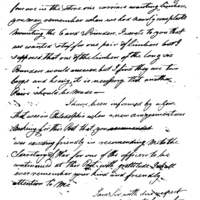 four in the Store one carriage wanting timbers
you may remember when we has nearly completed
mounting the 6 and Pounder, I wrote to you that
we wanted stuff for one pair of timbers but I
supposed that one of the timber of the long
Pounder would answer but I find they are two
large and heavy, it is necessary that another
Pair should be Made
I have been informed by a
that was in Philadelphia when a new arrangement was
Making for this Post that you recommended
was exceeding friendly in recommending Me to the
Secretary of War for one of the officers to be
continued at this Post, with gratitude I shall
ever remember your kind and friendly
attention to Me
I am Sir with due respect